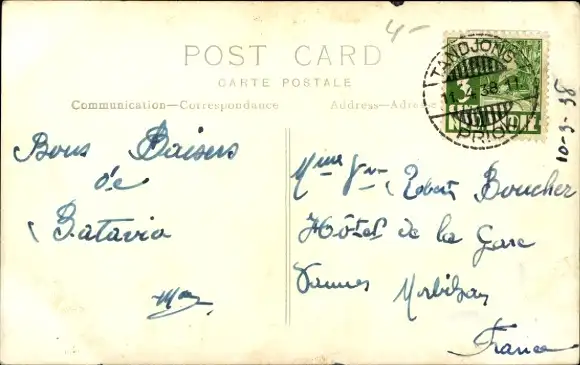 4-
POST CARD
CARTE POSTALE
Communication—Correspondance
Address—Adresse
TANDJONG
PRIOK
4.38.11
3
10-3-38
Bons Baisers
de
Batavia
Mme Vve Robert Boucher
Hôtel de la Gare
Vannes Morbihan
France